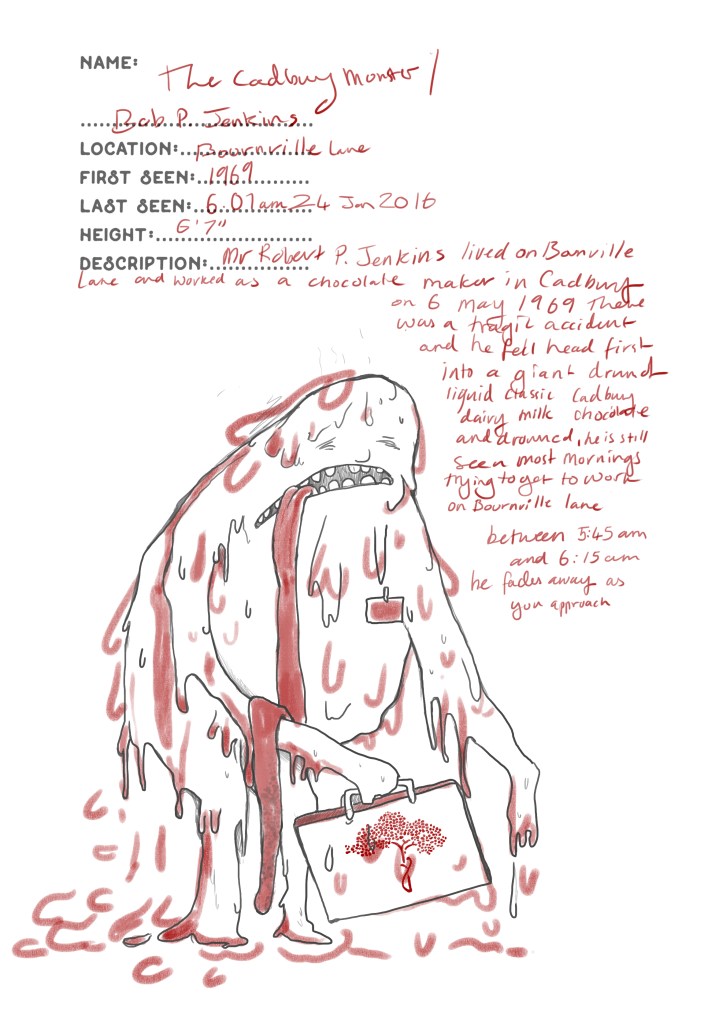 NAME: The Cadbury Monster /
Bob P. Jenkins
LOCATION: Bournville Lane
FIRST SEEN: 1969
LAST SEEN: 6.01am 24 Jan 2016
HEIGHT: 6'7"
DESCRIPTION: Mr Robert P. Jenkins lived on Bornville
Lane and worked as a chocolate maker in Cadbury
on 6 May 1969 There
was a tragic accident
and he fell head first
into a giant drum of
liquid classic Cadbury
dairy milk chocolate
and drowned, he is still
seen most mornings
trying to get to work
on Bournville lane
between 5:45 am
and 6:15 am
he fades away as
you approach